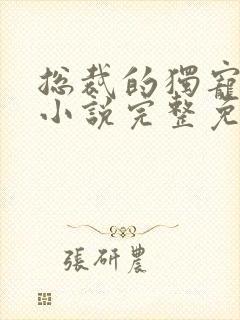 总裁的獨寵
小說完整免
張研農